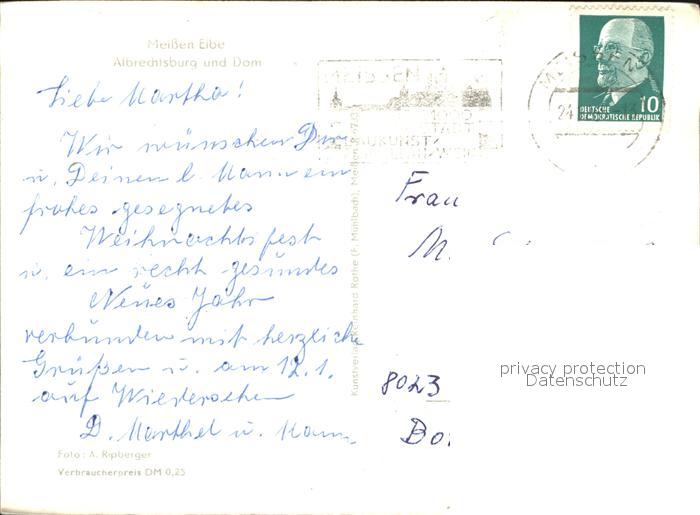 Meißen Elbe
Albrechtsburg und Dom
Liebe Martha!
Wir wünschen Dir
u. Deinem l. Mann ein
frohes gesegnetes
Weihnachtsfest
u. ein recht gesundes
Neues Jahr
verbunden mit herzliche
Grüßen u. am 12.1.
auf Wiedersehen
D. Marthel u. Mann
Foto: A. Ripberger
Verbraucherpreis DM 0,25
Kunstverlag Reinhard Rothe (F. Mühlbach), Meißen
DEUTSCHE
DEMOKRATISCHE REPUBLIK
10
24
Frau
M.
8023
Bo
privacy protection
Datenschutz